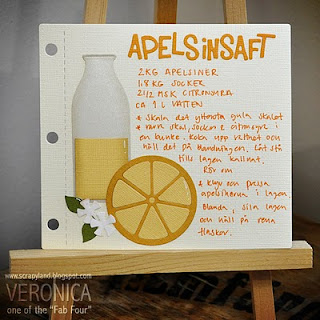 APELSINSAFT
2 KG APELSINER
1.8 KG SOCKER
2 1/2 MSK CITRONSYRA
CA 1 L VATTEN
* Skala det yttersta gula skalet
* varva skal, socker & citronsyra i
en bunke. Koka upp vattnet och
häll det på blandningen. Låt stå
tills lagen kallnat.
Rör om
* Klyv och pressa
apelsinerna i lagen
Blanda, sila lagen
och häll på rena
flaskor.
www.scrapyland.blogspot.com
VERONICA
one of the "Fab Four"